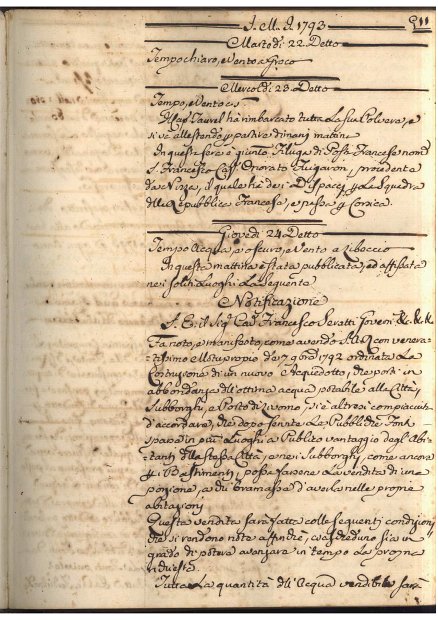 I. M. J. 1793
Martedì 22. Detto
Tempo chiaro, e Vento a
Mercoldì 23. Detto
Tempo, e Vento
hà rimbarcato tutta La Sua Polvera, e
si và allestendo p partire dimani mattina
In questa Sera è giunto Filuga di Posta Francese nomta
S. Francesco Capo Onorato, procedente
da Nizza, il quale hà de i Dispacj p La Squadra
della Repubblica Francese, e passa p Corsica.
Giovedì 24. Detto
Tempo Acqua, e oscuro, e Vento a Libeccio
In questa mattina è stata pubblicata, ed affissata
nei soliti Luoghi La Seguente
Notificazione
S. E. il Sig Cav Francesco Seratti Govern &c. &c. &c
Fa noto, e manifesto, come avendo S. A. R. con venera-
tissimo Motuproprio de 1792 ordinata La
Costruzione di un nuovo Acquedotto, che porti in
abbondanza dell'ottima acqua potabile alla Città,
Subborghi, e Porto di Livorno, si è altresì compiaciuta
d'accordare, che dopo fornite Le Pubbliche Fonti
sparse in più Luoghi a Publico vantaggio degl'Abi-
tanti della stessa Città, e nei Subborghi, come ancora
p i Bastimenti, possa farsene La vendita di una
porzione, a chi bramasse d'averla nelle proprie
abitazioni
Questa vendita sarà fatta colle seguenti condizioni
che si rendono note affinchè, ciascheduno sia in
grado di potere avanzare in tempo La propria
richiesta
Tutta La quantità dell'Acqua vendibile sarà